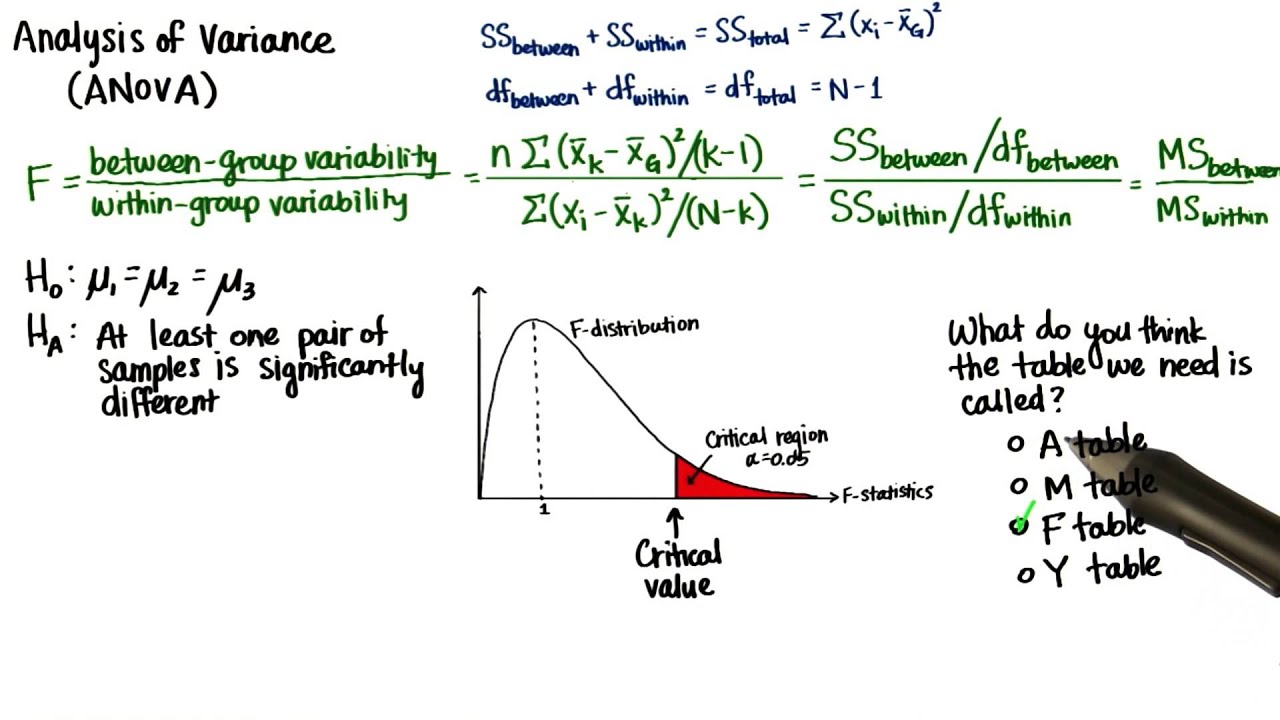 Analysis of Variance
(ANOVA)
SSbetween + SSwithin = SStotal = Σ(xᵢ - x̄G)²
dfbetween + dfwithin = dftotal = N-1
F = between-group variability / within-group variability = n Σ(x̄k - x̄G)²/(k-1) / Σ(xᵢ - x̄k)²/(N-k) = SSbetween/dfbetween / SSwithin/dfwithin = MSbetween / MSwithin
H₀: μ₁ = μ₂ = μ₃
HA: At least one pair of
samples is significantly
different
F-distribution
Critical region
α=0.05
F-statistics
1
Critical
value
What do you think
the table we need is
called?
A table
M table
F table
Y table